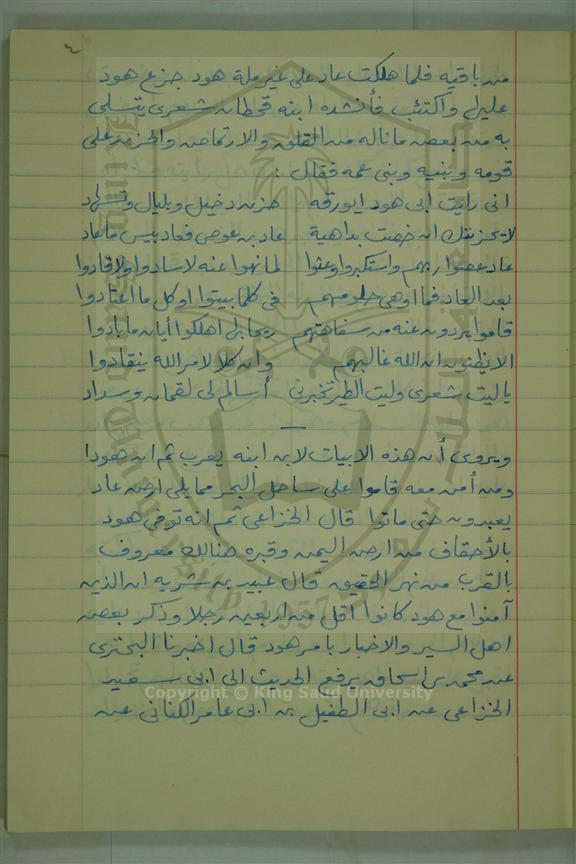 ٤
من باقيه فلما هلكت عاد على غير ملة هود جزع هود
عليهم واكتئب فأنشده ابنه قحطان شعرى يتسلى
به من بعض ما ناله من القلق والارتماض والحزن على
قومه وبنيه وبنى عمه فقال :
انى رايت ابى هود ايورقه حزن دخيل وبلبال وتسهاد
لا يحزنك ان خصت بداهية عاد بن عوص فعاد بيس ما عاد
عاد عصوا ربهم واستكبروا وعتوا لما نهوا عنه لا سادوا ولا قادوا
بعد العاد فما اوهى حلومهم فى كلما بيتوا او كل ما اعتادوا
قاموا يردون عنه من سفاهتهم ريحا بل اهلكوا أيان ما بادوا
الا يظنون ان الله غالبهم وان كلا لامر الله ينقادوا
ياليت شعرى وليت الطير تخبرنى أسالم لى لقمان وسداد
ويروى أن هذه الابيات لابن ابنه يعرب ثم ان هودا
ومن أمن معه قاموا على ساحل البحر مما يلى ارض عاد
يعبدون حتى ماتوا قال الخزاعى ثم انه توفى هود
بالأحقاف من ارض اليمن وقبره هنالك معروف
بالقرب من نهر الحقيق قال عبيد بن شريه ان الذين
آمنوا مع هود كانوا اقل من اربعين رجلا وذكر بعض
اهل السير والاخبار بامر هود قال اخبرنا البحترى
عن محمد بن اسحاق يرفع الحديث الى ابى سعيد
الخزاعى عن ابى الطفيل بن ابى عامر الكنانى عن
Copyright © King Saud University